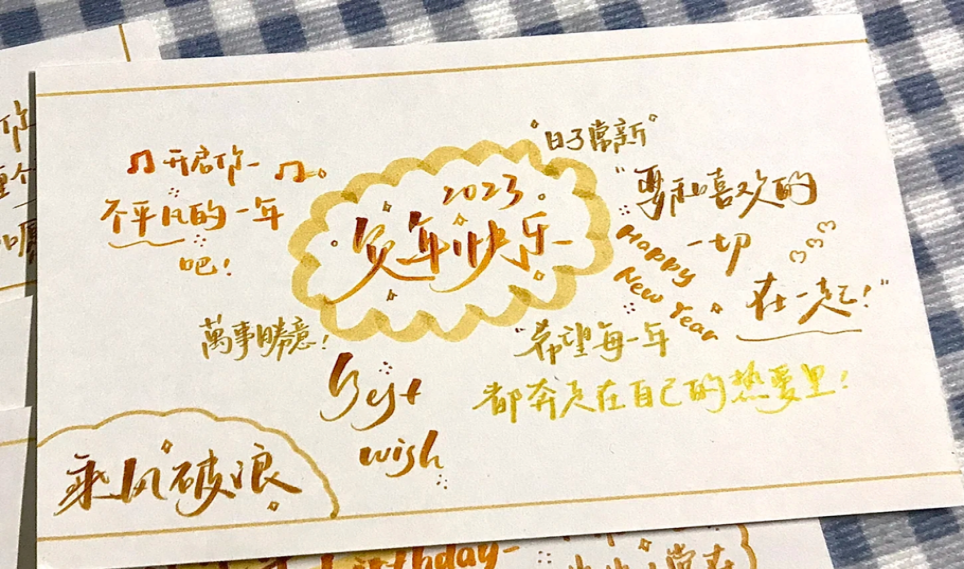 "日子常新"
♫ 开启你
不平凡的一年
吧!
2023
贺年快乐
"要和喜欢的
一切
在一起!"
Happy
New Year
萬事晴意!
"希望每一年
都奔走在自己的热爱里!
Best
wish
乘风破浪
你
birthday